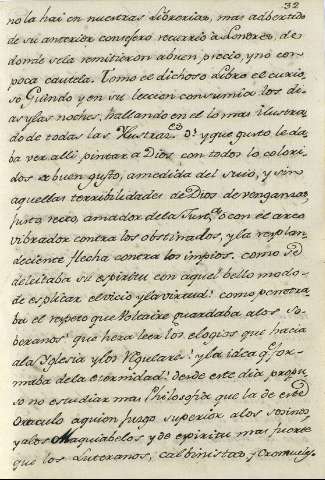 32
no la hai en nuestras Librerias, mas advertido
de su anterior consejero recurrio a Londres, de
donde se la remitieron a buen precio, y no con
poca cautela. Tomo el dichoso Libro el curio-
so Guindo y en su leccion consumia los di-
as y las noches, hallando en el lo mas ilustra-
do de todas las y que gusto le da-
ba ver alli pintar a Dios con todo lo colori-
dos a buen gusto, a medida del suio, y sin
aquellas terribilidades de Dios de venganzas,
justo, recto, amador de la con el arco
vibrador contra los obstinados, y la resplan-
deciente flecha contra los impios. como se
deleitaba su espiritu con aquel bello modo
de esplicar el vicio y la virtud! como penetra-
ba el respeto que Voltaire guardaba a los so-
beranos! que hera leer los elogios que hacia
a la Yglesia y los Regulares! y la idea q.e for-
maba de la eternidad! desde este dia propu-
so no estudiar mas Philosofia que la de este
Oraculo a quien juzgo superior a los
y a los Maquiabelos y de espiritu mas fuerte
que los Luteranos, calbinistas y